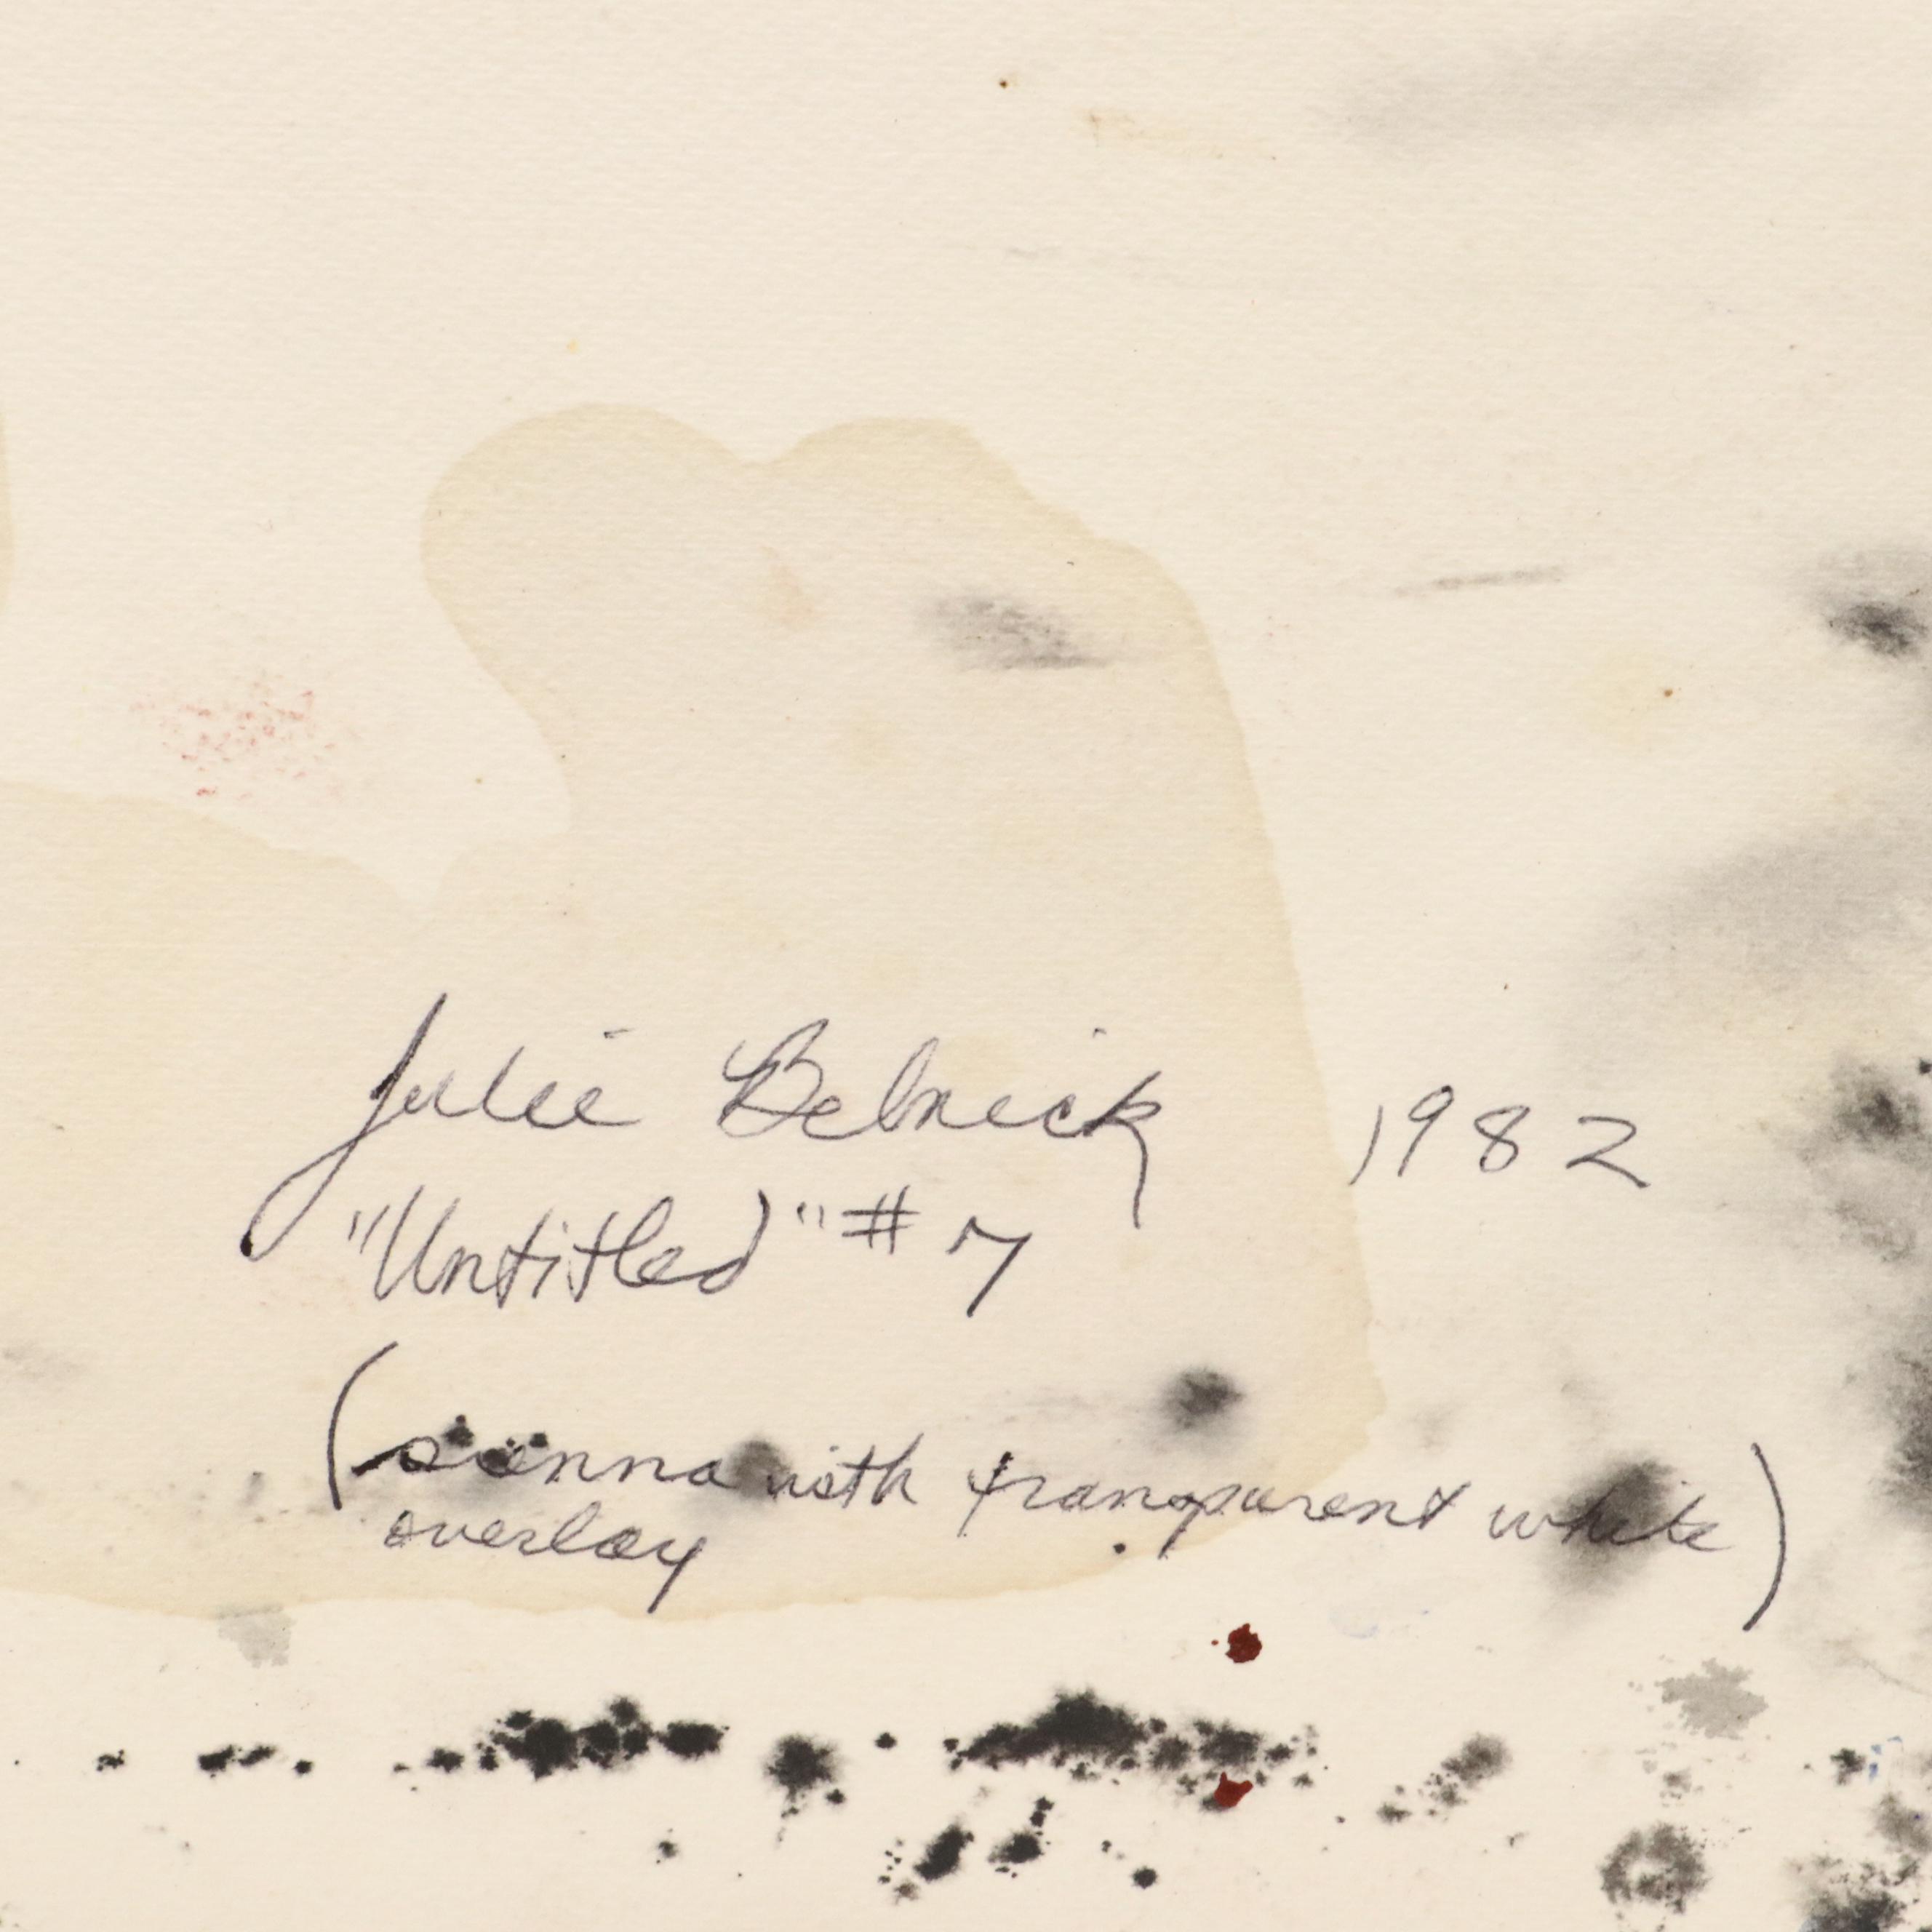 Julie Belnick 1982
"Untitled" # 7
(sienna with transparent white)
overlay